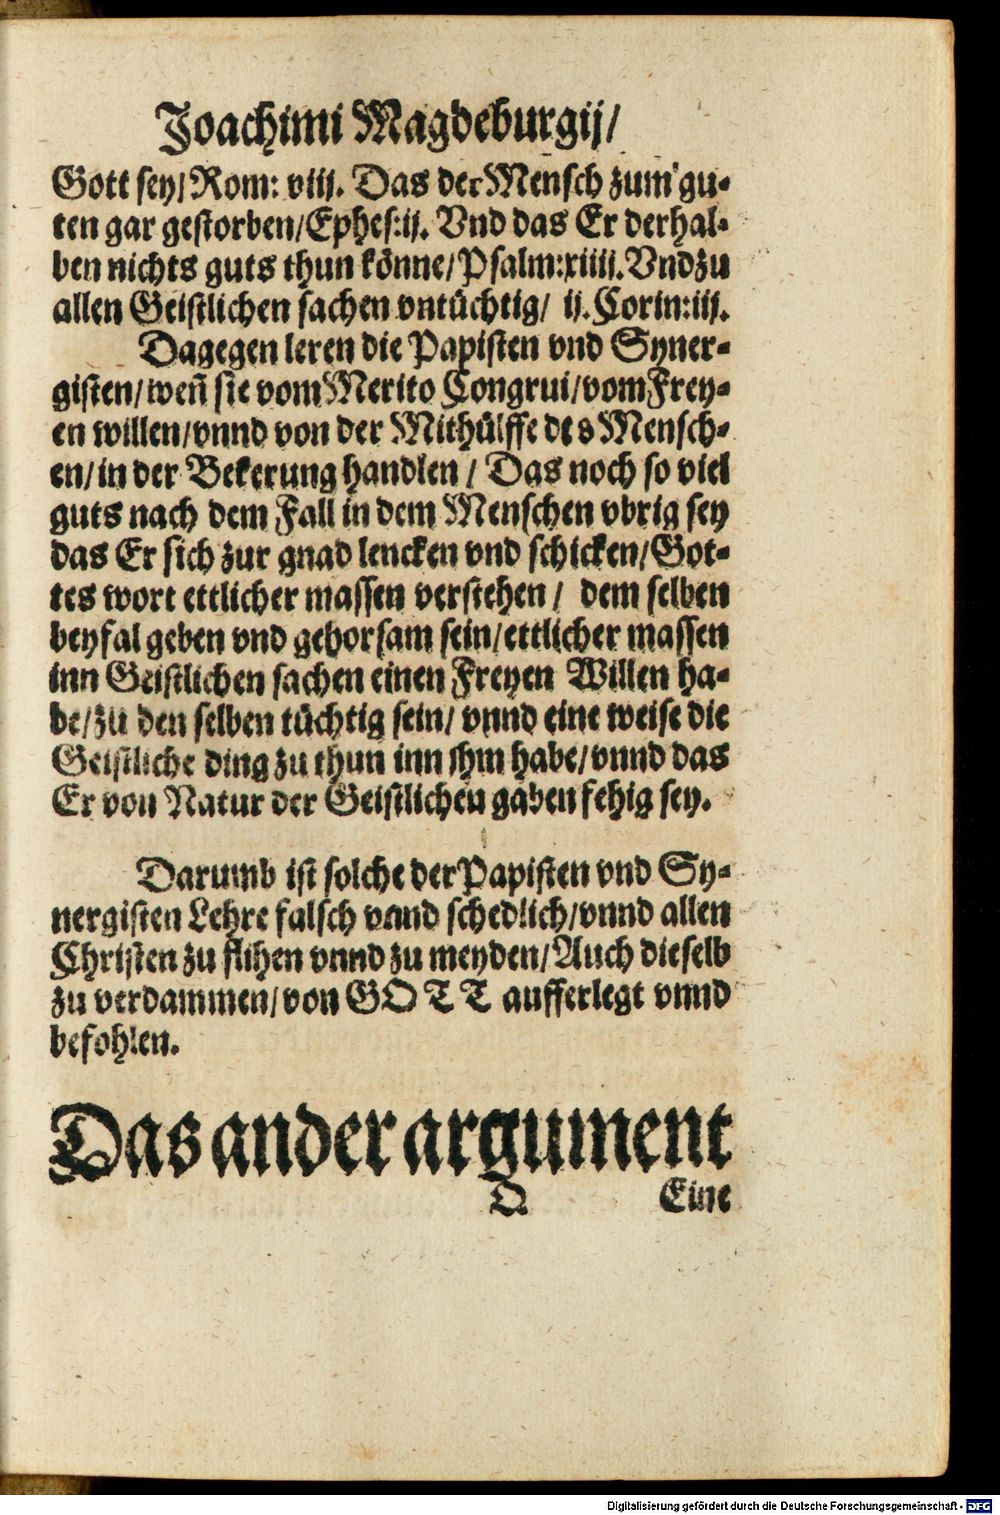 Joachimi Magdeburgij/
Gott sey/ Rom: viij. Das der Mensch zum gu-
ten gar gestorben/ Ephes: ij. Vnd das Er derhal-
ben nichts guts thun könne/ Psalm: xiiij. Vnd zu
allen Geistlichen sachen vntüchtig/ ij. Corin: iij.
Dagegen leren die Papisten vnd Syner-
gisten/ weñ sie vom Merito Congrui/ vom Frey-
en willen/ vnnd von der Mithülffe des Mensch-
en/ in der Bekerung handlen/ Das noch so viel
guts nach dem Fall in dem Menschen vbrig sey
das Er sich zur gnad lencken vnd schicken/ Got-
tes wort ettlicher massen verstehen/ dem selben
beyfal geben vnd gehorsam sein/ ettlicher massen
inn Geistlichen sachen einen Freyen Willen ha-
be/ zu den selben tüchtig sein/ vnnd eine weise die
Geistliche ding zu thun inn ihm habe/ vnnd das
Er von Natur der Geistlichen gaben fehig sey.
Darumb ist solche der Papisten vnd Sy-
nergisten Lehre falsch vnnd schedlich/ vnnd allen
Christen zu flihen vnnd zu meyden/ Auch dieselb
zu verdammen/ von GOTT aufferlegt vnnd
befohlen.
Das ander argument
D Eine
Digitalisierung gefördert durch die Deutsche Forschungsgemeinschaft - DFG